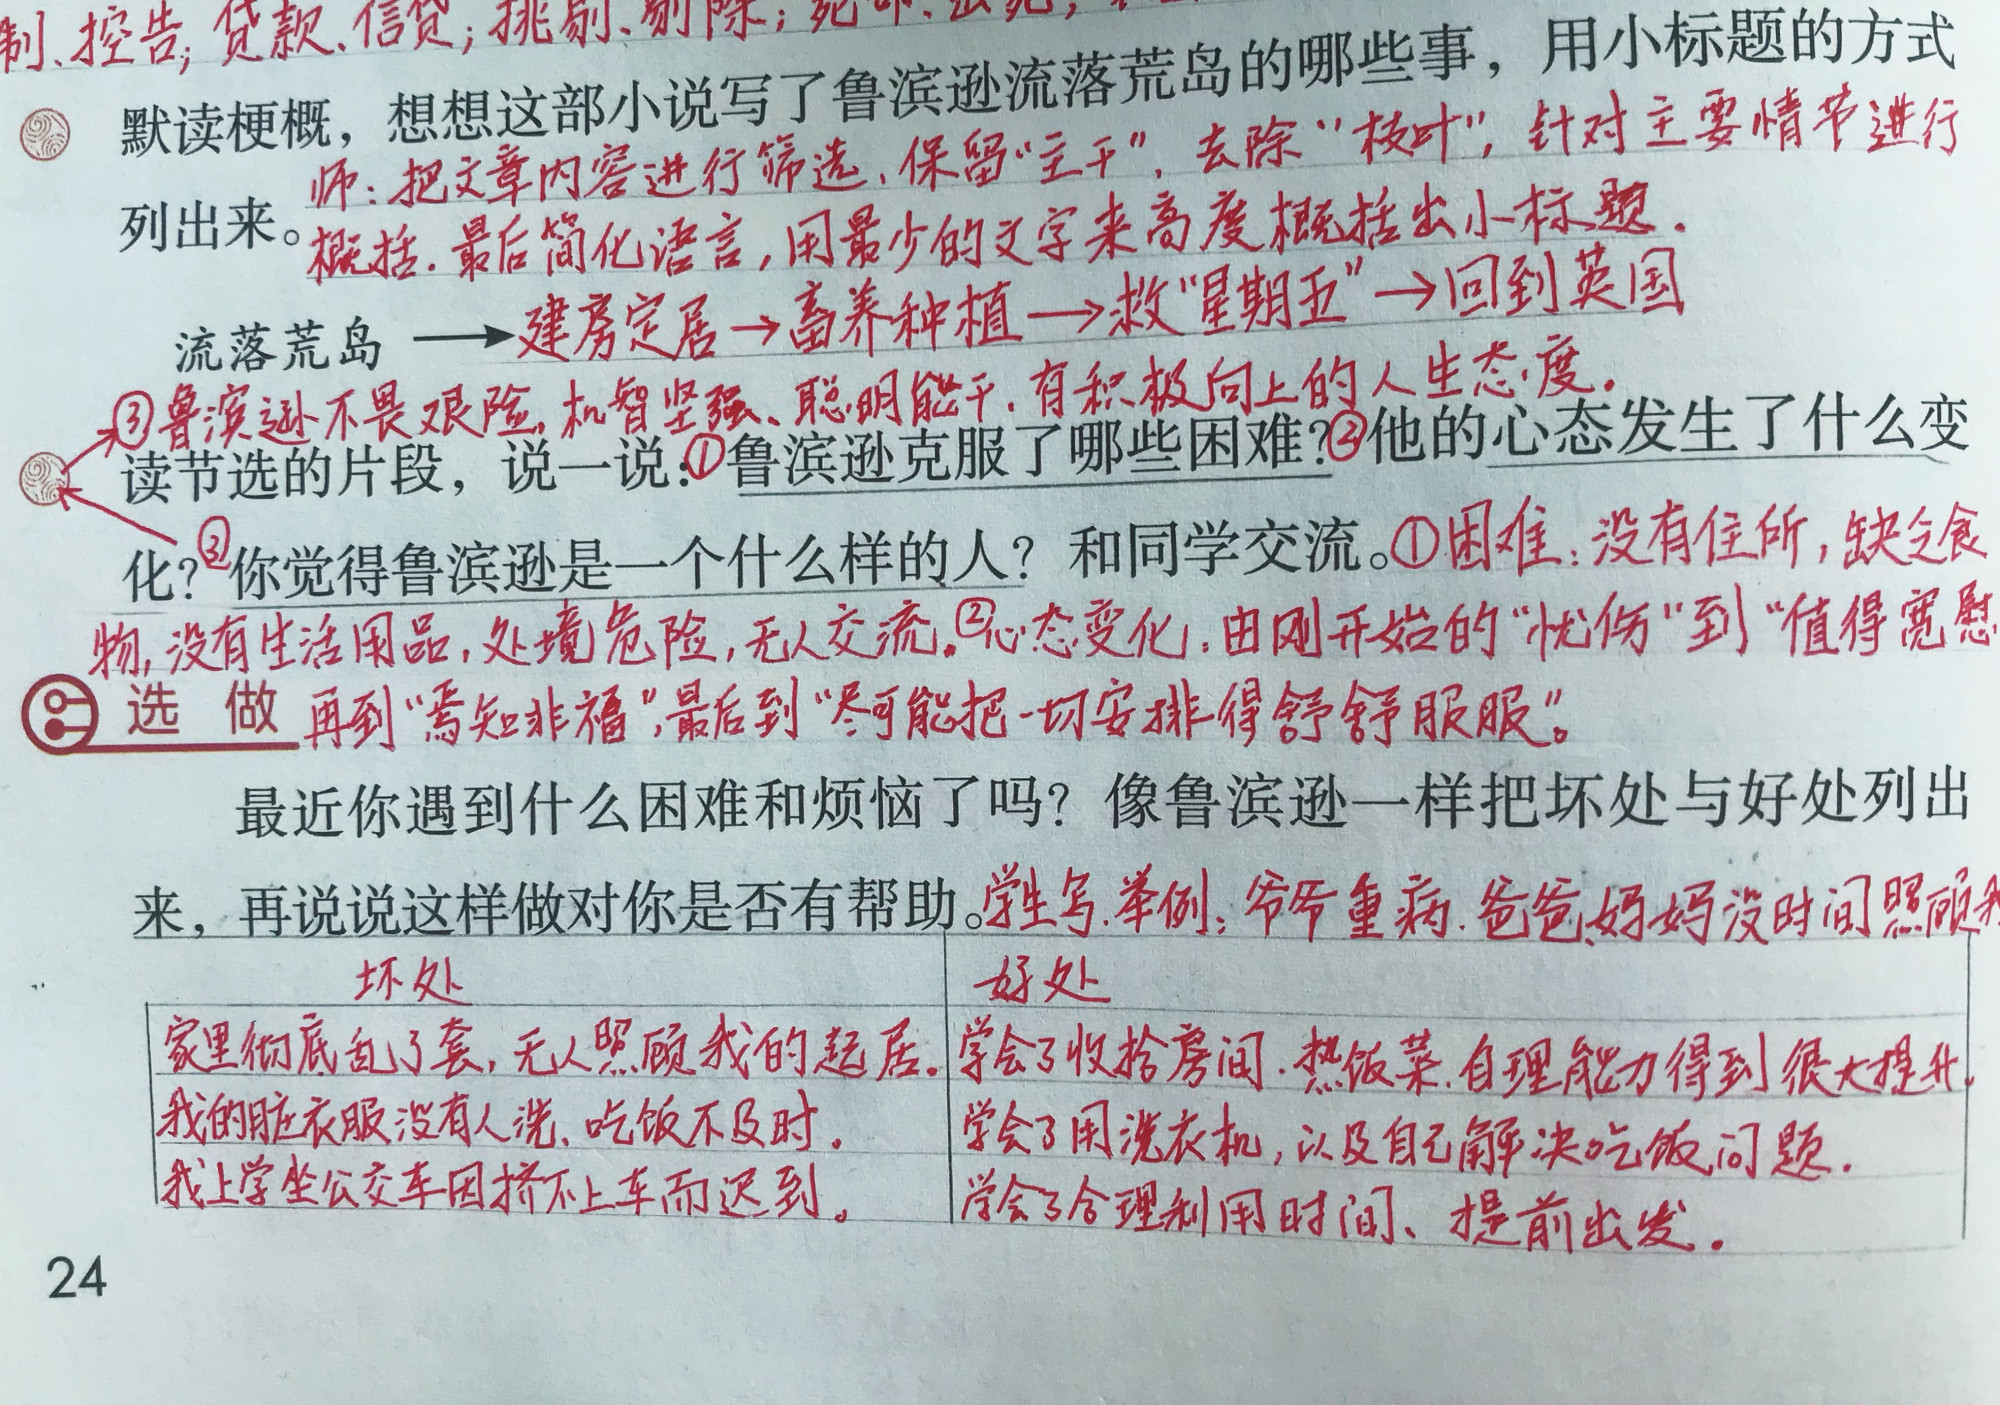 制、控告;贷款、信贷;挑剔、剔除;
默读梗概，想想这部小说写了鲁滨逊流落荒岛的哪些事，用小标题的方式
师:把文章内容进行筛选、保留“主干”，去除“枝叶”，针对主要情节进行
列出来。
概括.最后简化语言,用最少的文字来高度概括出小标题.
流落荒岛→建房定居→畜养种植→救“星期五”→回到英国
③鲁滨逊不畏艰险,机智坚强、聪明能干.有积极向上的人生态度.
读节选的片段，说一说:①鲁滨逊克服了哪些困难?②他的心态发生了什么变
化?③你觉得鲁滨逊是一个什么样的人? 和同学交流。①困难:没有住所,缺乏食
物,没有生活用品,处境危险,无人交流。②心态变化:由刚开始的“忧伤”到“值得宽慰
选做 再到“焉知非福”,最后到“尽可能把一切安排得舒舒服服”。
最近你遇到什么困难和烦恼了吗? 像鲁滨逊一样把坏处与好处列出
来，再说说这样做对你是否有帮助。学生写.举例:爷爷重病.爸爸妈妈没时间照顾我
坏处 好处
家里彻底乱了套,无人照顾我的起居. 学会了收拾房间.热饭菜.自理能力得到很大提升.
我的脏衣服没有人洗、吃饭不及时. 学会了用洗衣机,以及自己解决吃饭问题.
我上学坐公交车因挤不上车而迟到。 学会了合理利用时间、提前出发.
24